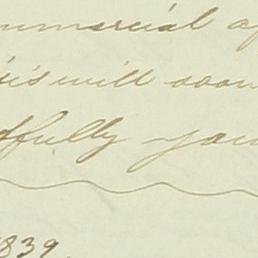 mmercial
will soon
fully you
1839